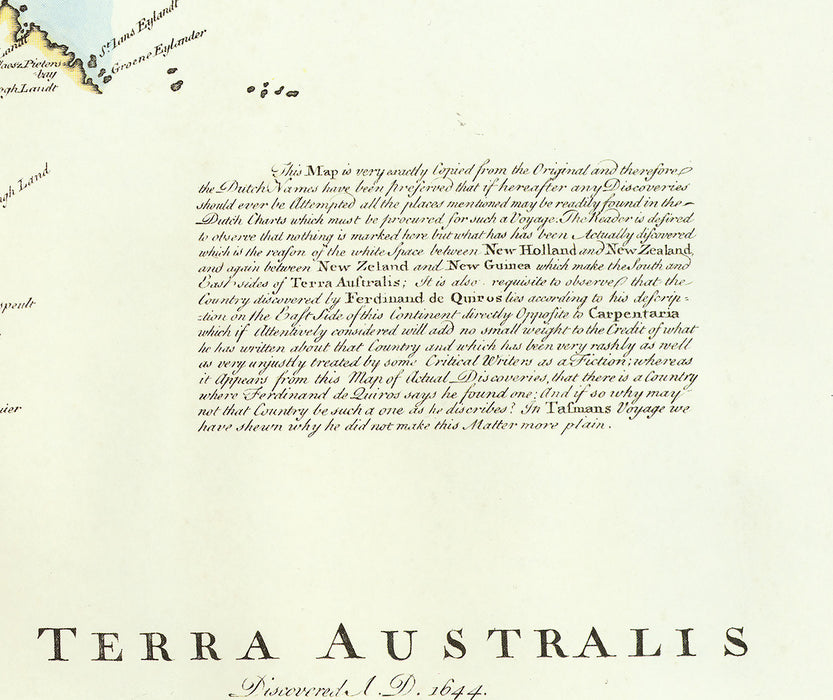 St. Jans Eylandt
Groene Eylander
Landt
Pieters
bay
Landt
This Map is very exactly Copied from the Original and therefore
the Dutch Names have been preſerved that if hereafter any Discoveries
should ever be Attempted all the places mentioned may be readily found in the
Dutch Charts which must be procured for such a Voyage. The Reader is deſired
to obſerve that nothing is marked here but what has has been Actually diſcovered
which is the reaſon of the white Space between New Holland and New Zealand,
and again between New Zeland and New Guinea which make the South and
Eaſt sides of Terra Auſtralis; It is also requisite to obſerve that the
Country discovered by Ferdinand de Quiros lies according to his deſcrip-
-tion on the Eaſt Side of this Continent directly Oppoſite to Carpentaria
which if Attentively conſidered will add no small weight to the Credit of what
he has written about that Country and which has been very rashly as well
as very unjustly treated by some Critical Writers as a Fiction; whereas
it Appears from this Map of Actual Discoveries, that there is a Country
where Ferdinand de Quiros says he found one: And if so why may
not that Country be such a one as he discribes? In Taſmans Voyage we
have shewn why he did not make this Matter more plain.
Land
TERRA AUSTRALIS
Discovered A. D. 1644.